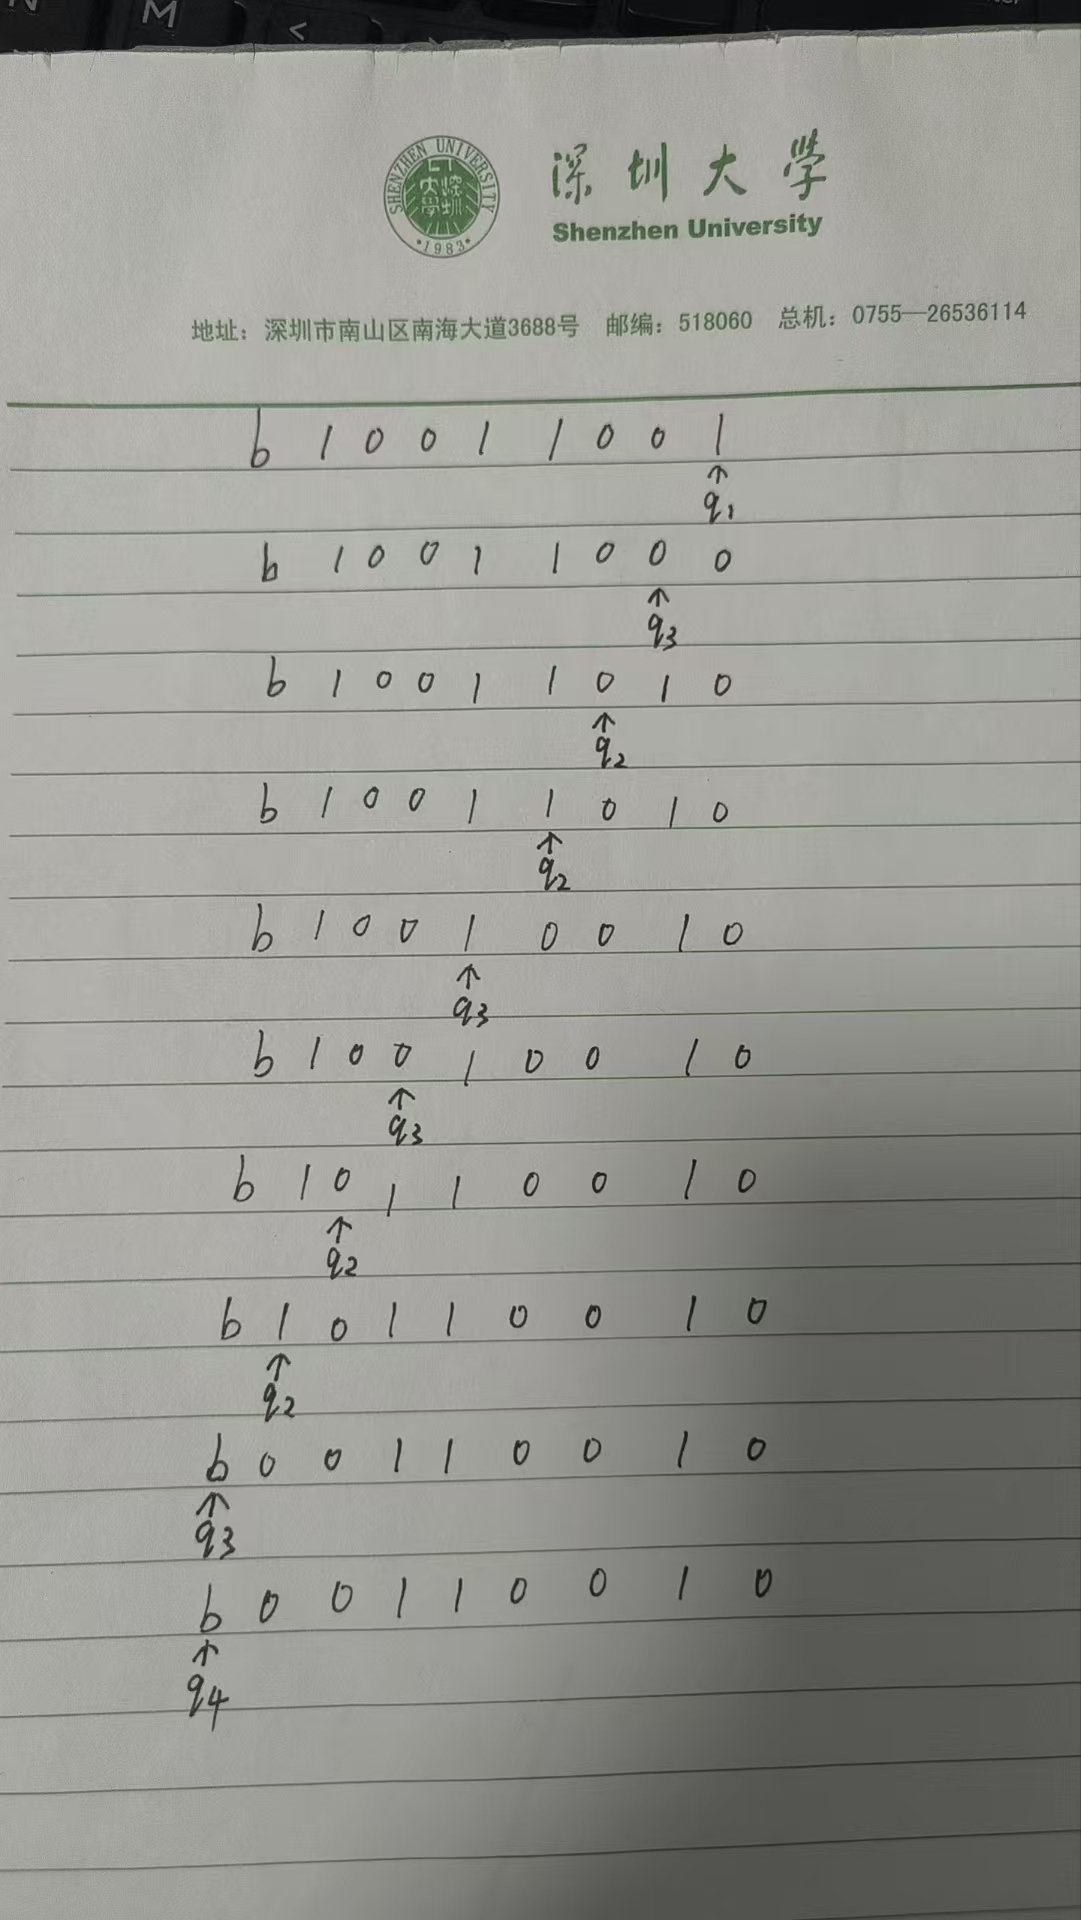 N M <
SHENZHEN UNIVERSITY
1983
深圳大学
Shenzhen University
地址：深圳市南山区南海大道3688号 邮编：518060 总机：0755—26536114
b 1 0 0 1 1 0 0 1
↑
q1
b 1 0 0 1 1 0 0 0
↑
q3
b 1 0 0 1 1 0 1 0
↑
q2
b 1 0 0 1 1 0 1 0
↑
q2
b 1 0 0 1 0 0 1 0
↑
q3
b 1 0 0 1 0 0 1 0
↑
q3
b 1 0 1 1 0 0 1 0
↑
q2
b 1 0 1 1 0 0 1 0
↑
q2
b 0 0 1 1 0 0 1 0
↑
q3
b 0 0 1 1 0 0 1 0
↑
q4